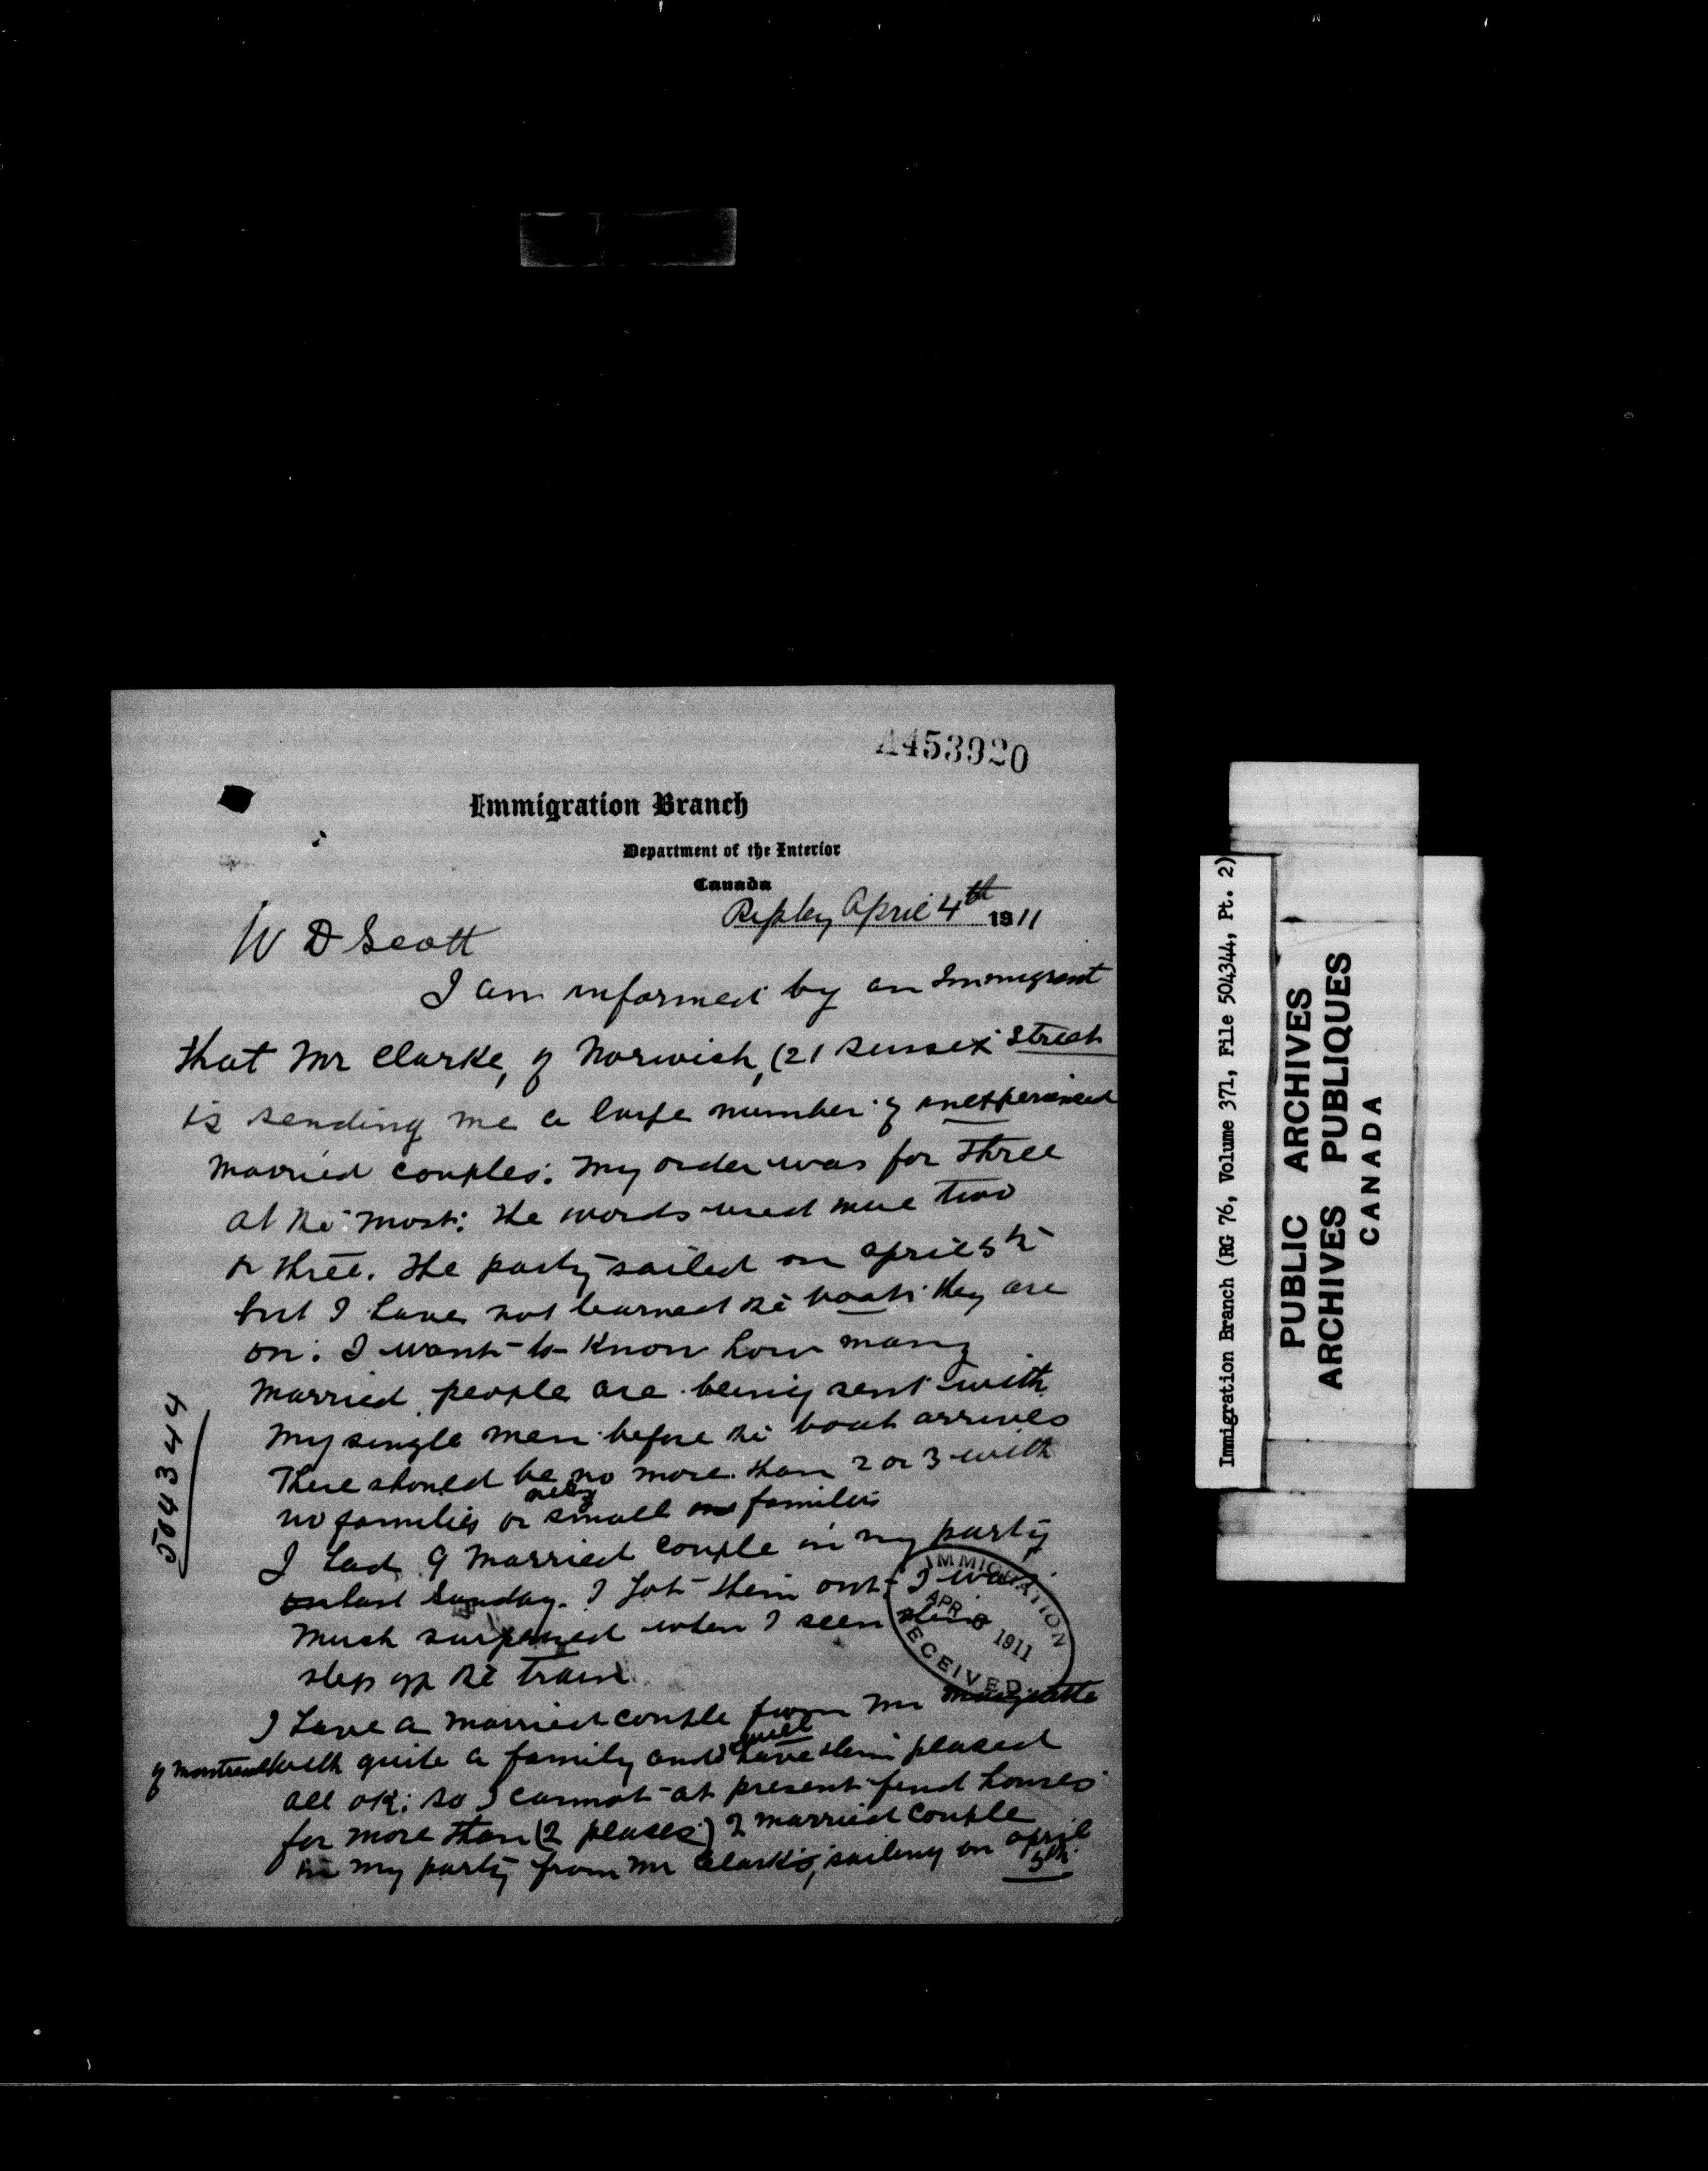 A453920
Immigration Branch
Department of the Interior
Canada
Ripley April 4th 1911
W D Scott
I am informed by an Immigrant
that Mr Clarke, of Norwich, (21 Sussex Street
is sending me a large number of inexperienced
married couples. My order was for three
at the most: the words used were two
or three. The party sailed on April 5th
but I have not learned the boat they are
on. I want to know how many
married people are being sent with
my single men before the boat arrives
There should be no more than 2 or 3 with
no families or very small families
I had 9 married couple in my party
on last Sunday. I got them out. I was
much surprised when I seen them
step off the train
I have a married couple from Mr Marquette
of Montreal with quite a family and I will have them placed
all ok: so I cannot at present find houses
for more than (2 places) 2 married couple
in my party from Mr Clark's, sailing on April
5th
504344
IMMIGRATION
APR 1911
RECEIVED
Immigration Branch (RG 76, Volume 371, File 504344, Pt. 2)
PUBLIC ARCHIVES
ARCHIVES PUBLIQUES
CANADA